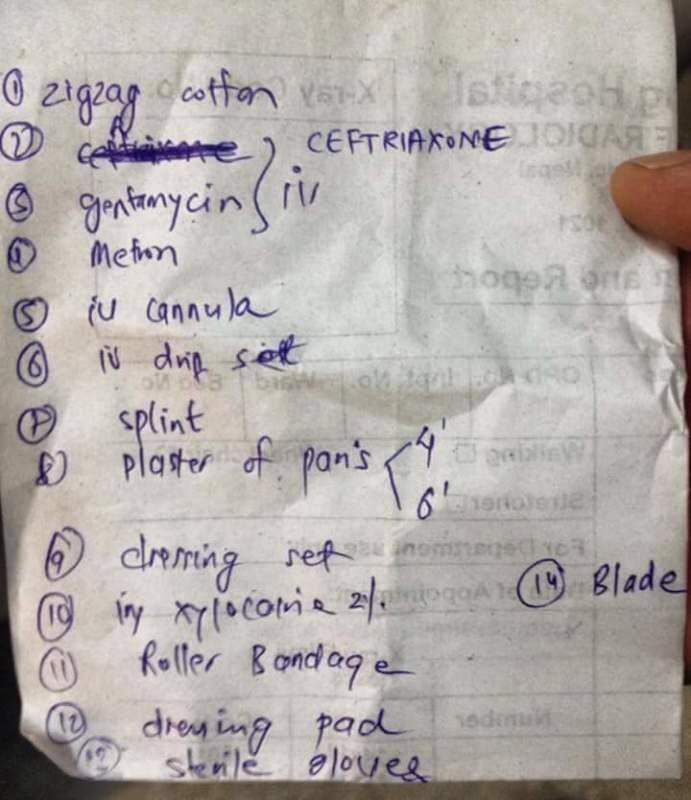 ① zigzag cotton
② ceftrixone CEFTRIAXONE
③ gentamycin } iv
④ Metron
⑤ iv cannula
⑥ iv drip set
⑦ splint
⑧ plaster of paris < 4'
6'
⑨ dressing set
⑩ inj xylocaine 2%
⑭ Blade
⑪ Roller Bandage
⑫ dressing pad
⑬ sterile gloves
ng Hospital
X-ray
F RADIOLOGY
Nepal
1021
n and Report
OPD No. Inpt. No. Ward Bed No
Walking
Wheelchair
Stretcher
For Department use only
of Appointment
Number